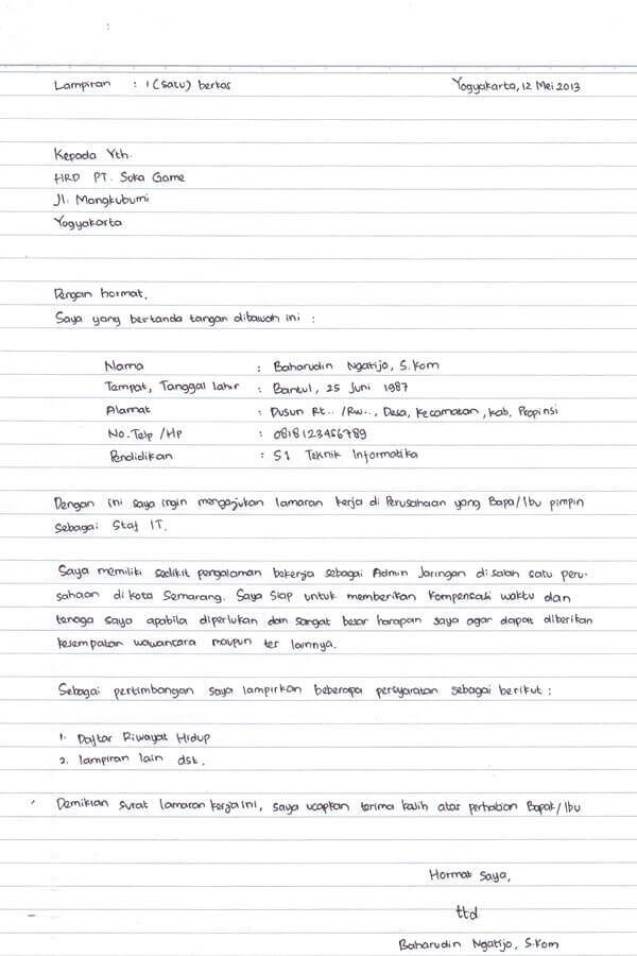 Lampiran : 1 (satu) berkas Yogyakarta, 12 Mei 2013
Kepada Yth.
HRD PT. Suka Game
Jl. Mangkubumi
Yogyakarta
Dengan hormat,
Saya yang bertanda tangan dibawah ini :
Nama : Baharudin Ngatijo, S.Kom
Tempat, Tanggal lahir : Bantul, 25 Juni 1987
Alamat : Dusun Rt.. /Rw.., Desa, Kecamatan, kab, Propinsi
No. Telp /HP : 0818123456789
Pendidikan : S1 Teknik Informatika
Dengan ini saya ingin mengajukan lamaran kerja di Perusahaan yang Bapa/Ibu pimpin
Sebagai Staf IT.
Saya memiliki sedikit pengalaman bekerja sebagai Admin Jaringan di salah satu peru-
sahaan di kota Semarang. Saya Siap untuk memberikan Kompensasi waktu dan
tenaga saya apabila diperlukan dan sangat besar harapan saya agar dapat diberikan
kesempatan wawancara maupun tes lainnya.
Sebagai pertimbangan saya lampirkan beberapa persyaratan sebagai berikut :
1. Daftar Riwayat Hidup
2. lampiran lain dsk.
Demikian Surat lamaran kerja ini, saya ucapkan terima kasih atas perhatian Bapak/Ibu
Hormat Saya,
ttd
Baharudin Ngatijo, S.Kom